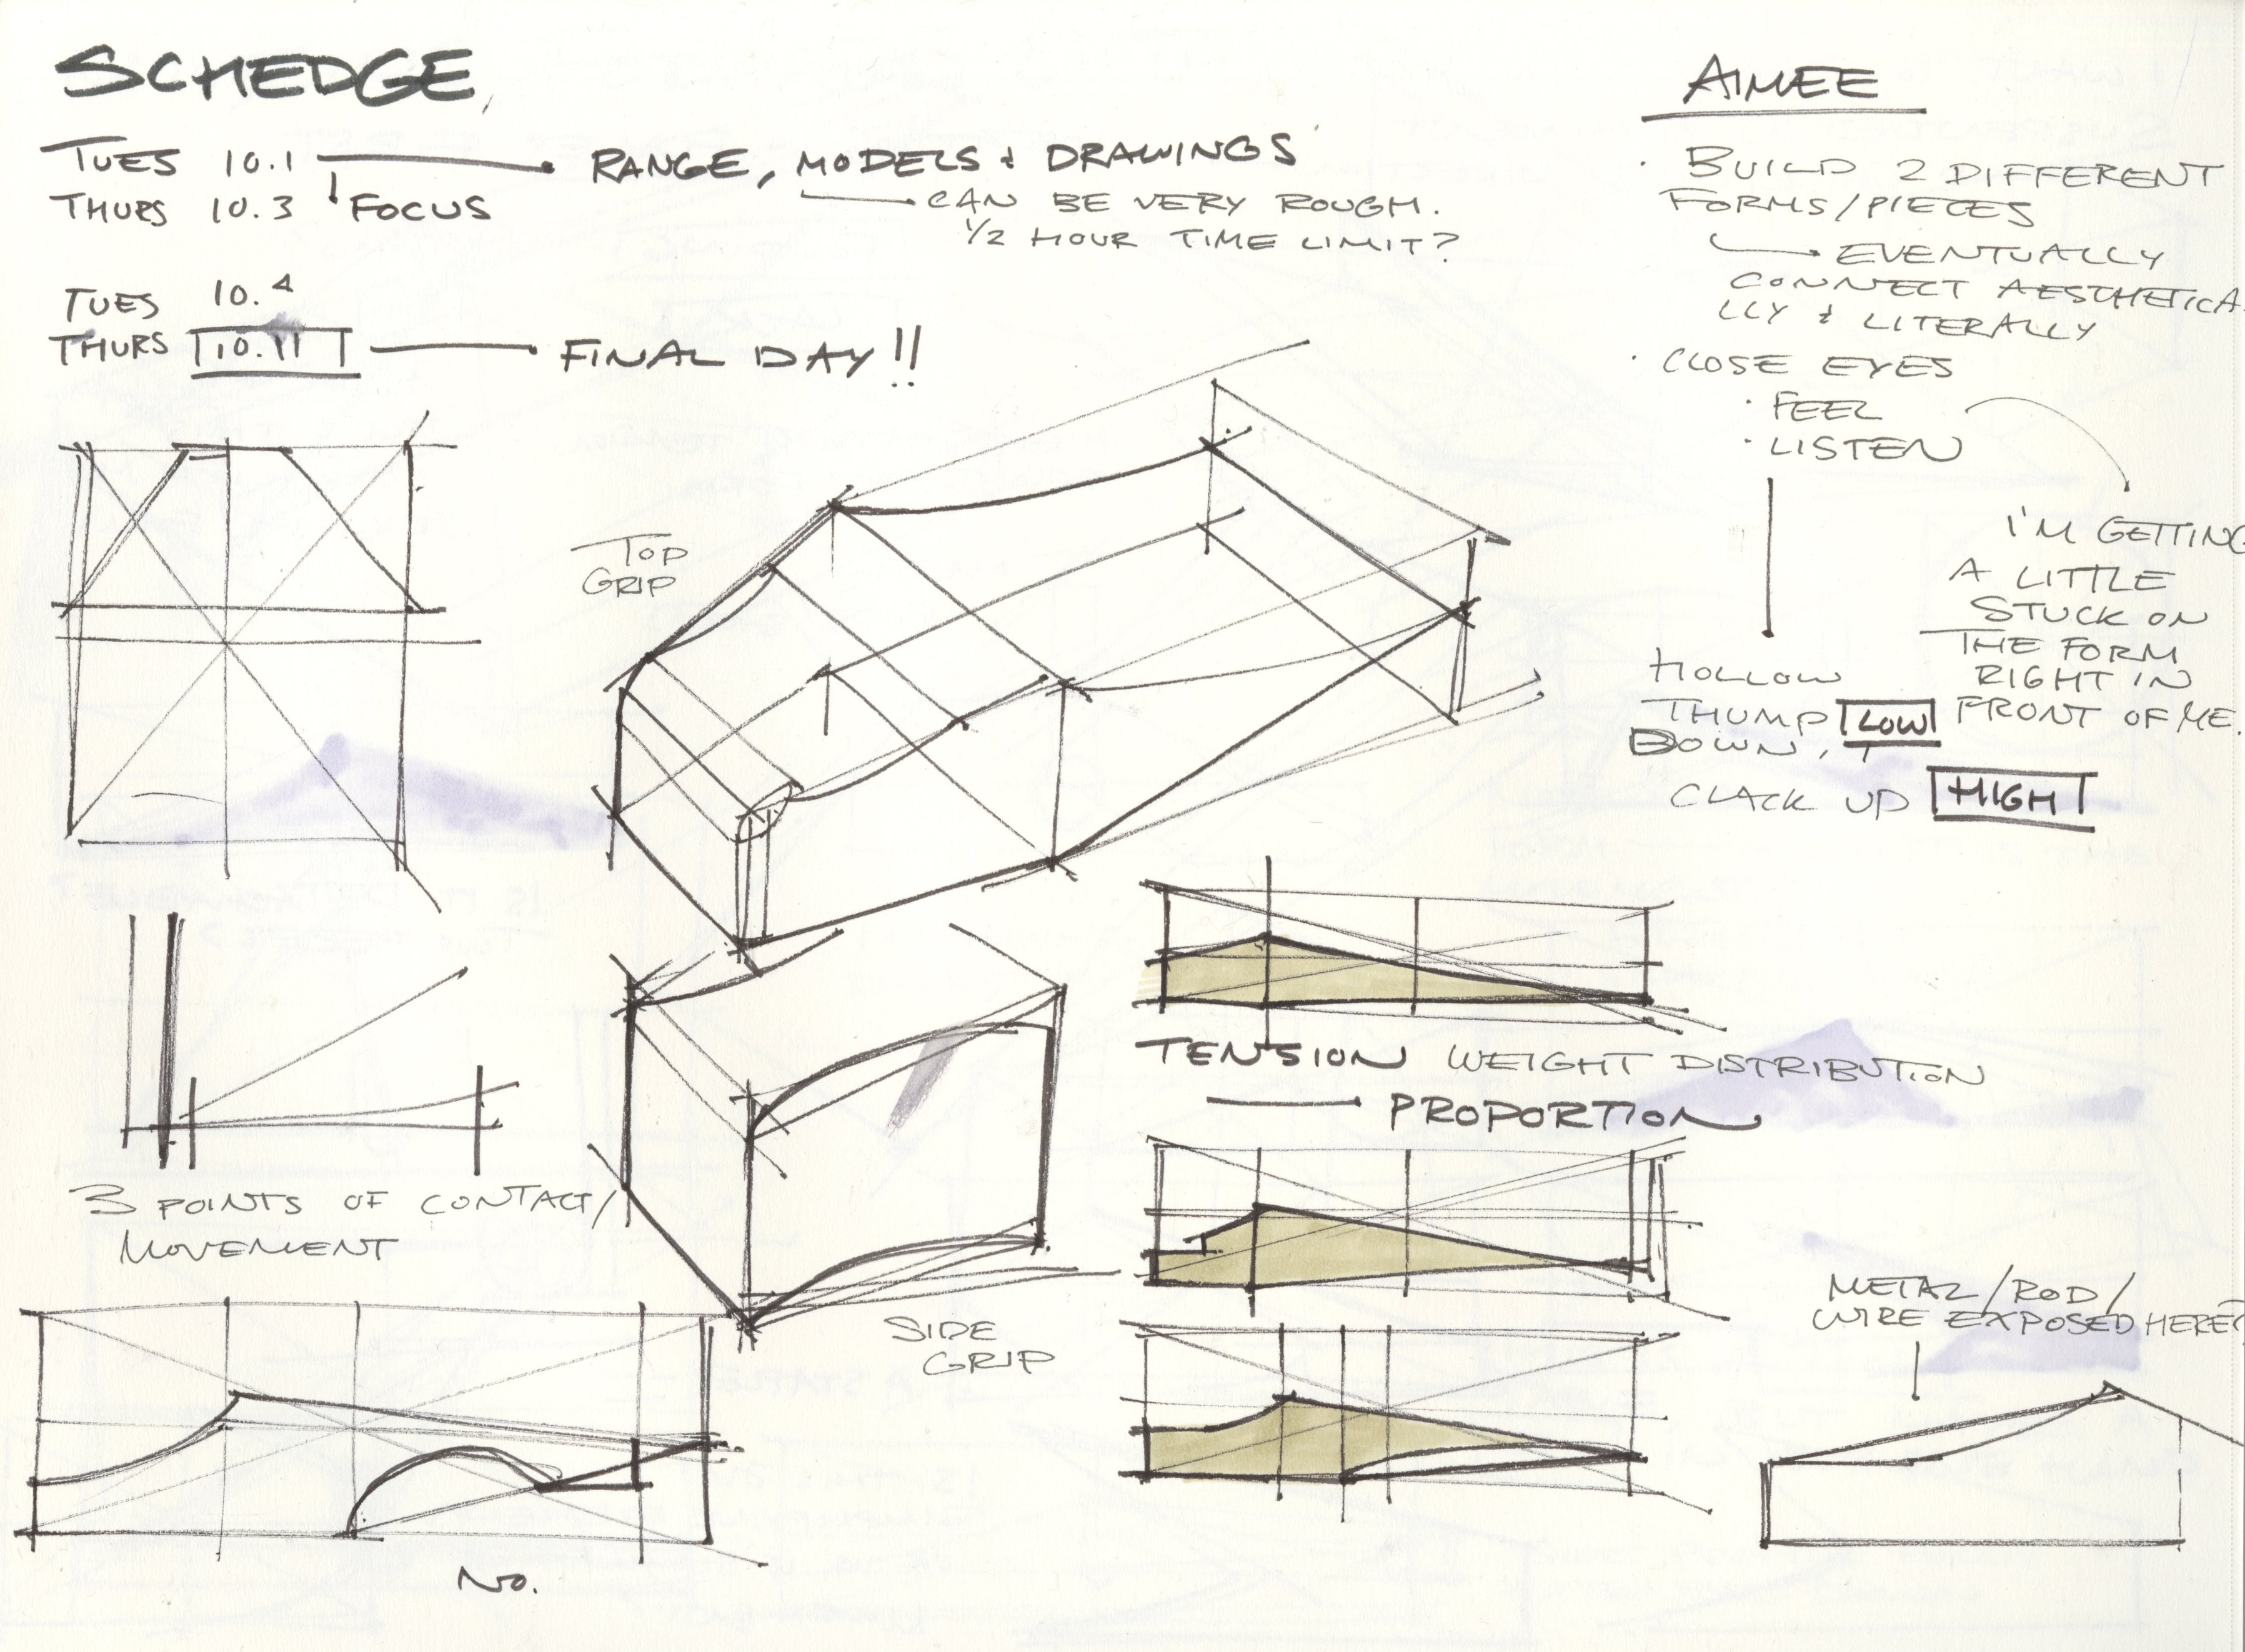 SCHEDGE
TUES 10.1
RANGE, MODELS & DRAWINGS
THURS 10.3
FOCUS
CAN BE VERY ROUGH.
1/2 HOUR TIME LIMIT?
TUES 10.
THURS 10.11
FINAL DAY!!
AIMEE
· BUILD 2 DIFFERENT
FORMS/PIECES
EVENTUALLY
CONNECT AESTHETICA
LLY & LITERALLY
· CLOSE EYES
· FEEL
· LISTEN
I'M GETTING
A LITTLE
STUCK ON
THE FORM
RIGHT IN
FRONT OF ME.
HOLLOW
THUMP LOW
DOWN,
CLACK UP HIGH
TOP
GRIP
TENSION WEIGHT DISTRIBUTION
PROPORTION
3 POINTS OF CONTACT/
MOVEMENT
SIDE
GRIP
METAL/ROD/
WIRE EXPOSED HERE?
NO.